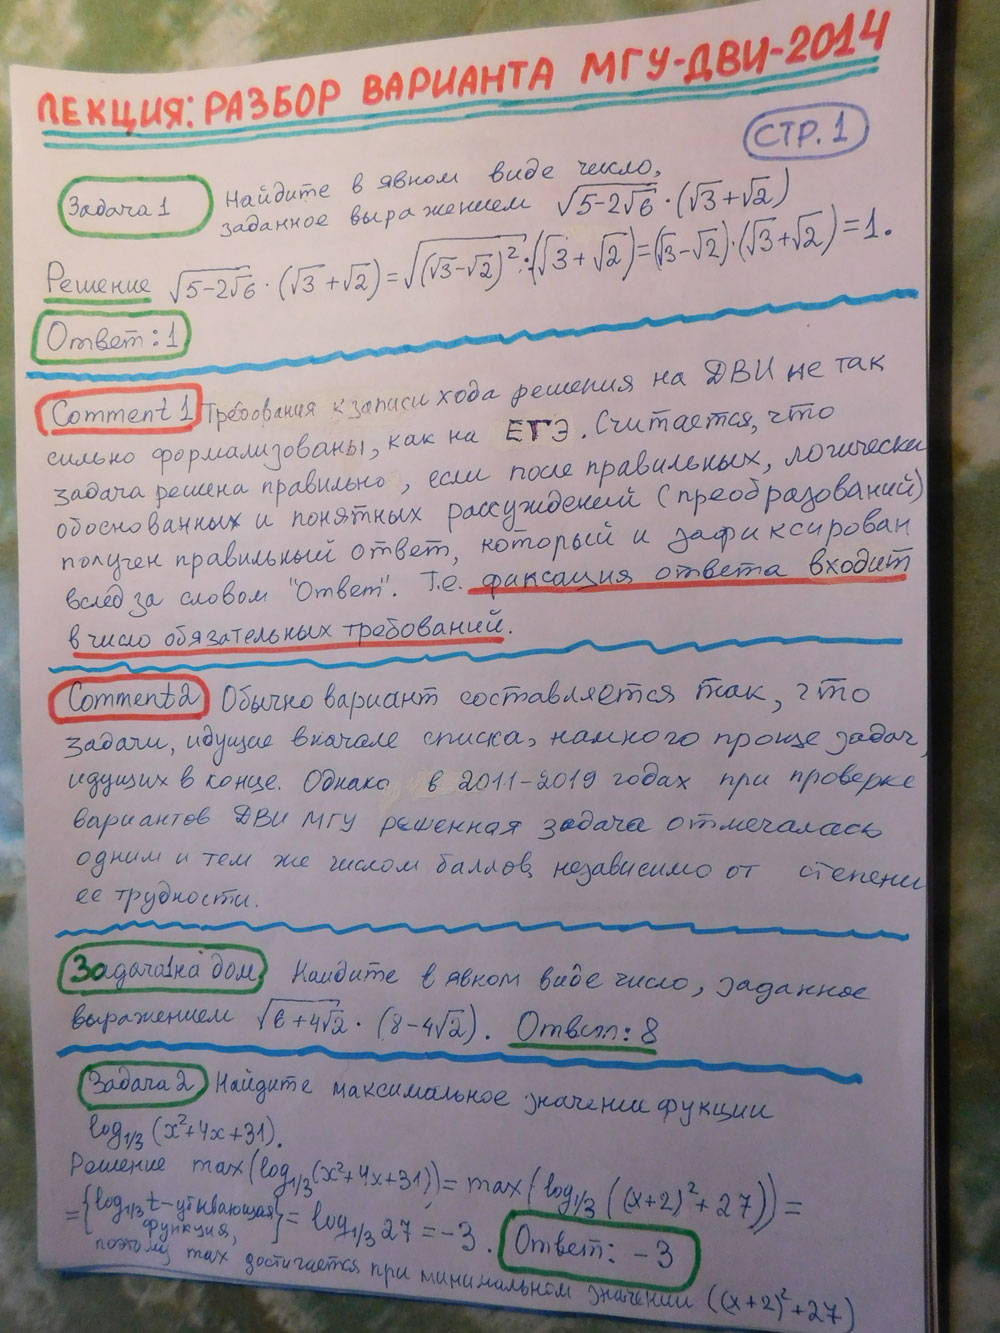 ЛЕКЦИЯ: РАЗБОР ВАРИАНТА МГУ-ДВИ-2014
СТР. 1
Задача 1 Найдите в явном виде число,
заданное выражением √(5-2√6) · (√3+√2)
Решение √(5-2√6) · (√3+√2) = √((√3-√2)²) · (√3+√2) = (√3-√2) · (√3+√2) = 1.
Ответ: 1
Comment 1 Требования к записи хода решения на ДВИ не так
сильно формализованы, как на ЕГЭ. Считается, что
задача решена правильно, если после правильных, логически
обоснованных и понятных рассуждений (преобразований)
получен правильный ответ, который и зафиксирован
вслед за словом "Ответ". Т.е. фиксация ответа входит
в число обязательных требований.
Comment 2 Обычно вариант составляется так, что
задачи, идущие вначале списка, намного проще задач,
идущих в конце. Однако в 2011-2019 годах при проверке
вариантов ДВИ МГУ решенная задача отмечалась
одним и тем же числом баллов, независимо от степени
ее трудности.
Задача 1 на дом Найдите в явном виде число, заданное
выражением √(6+4√2) · (8-4√2). Ответ: 8
Задача 2 Найдите максимальное значении фукции
log₁/₃ (x²+4x+31).
Решение max(log₁/₃(x²+4x+31)) = max(log₁/₃((x+2)²+27)) =
= {log₁/₃ t - убывающая функция, поэтому max достигается при минимальном значении ((x+2)²+27)} = log₁/₃ 27 = -3. Ответ: -3